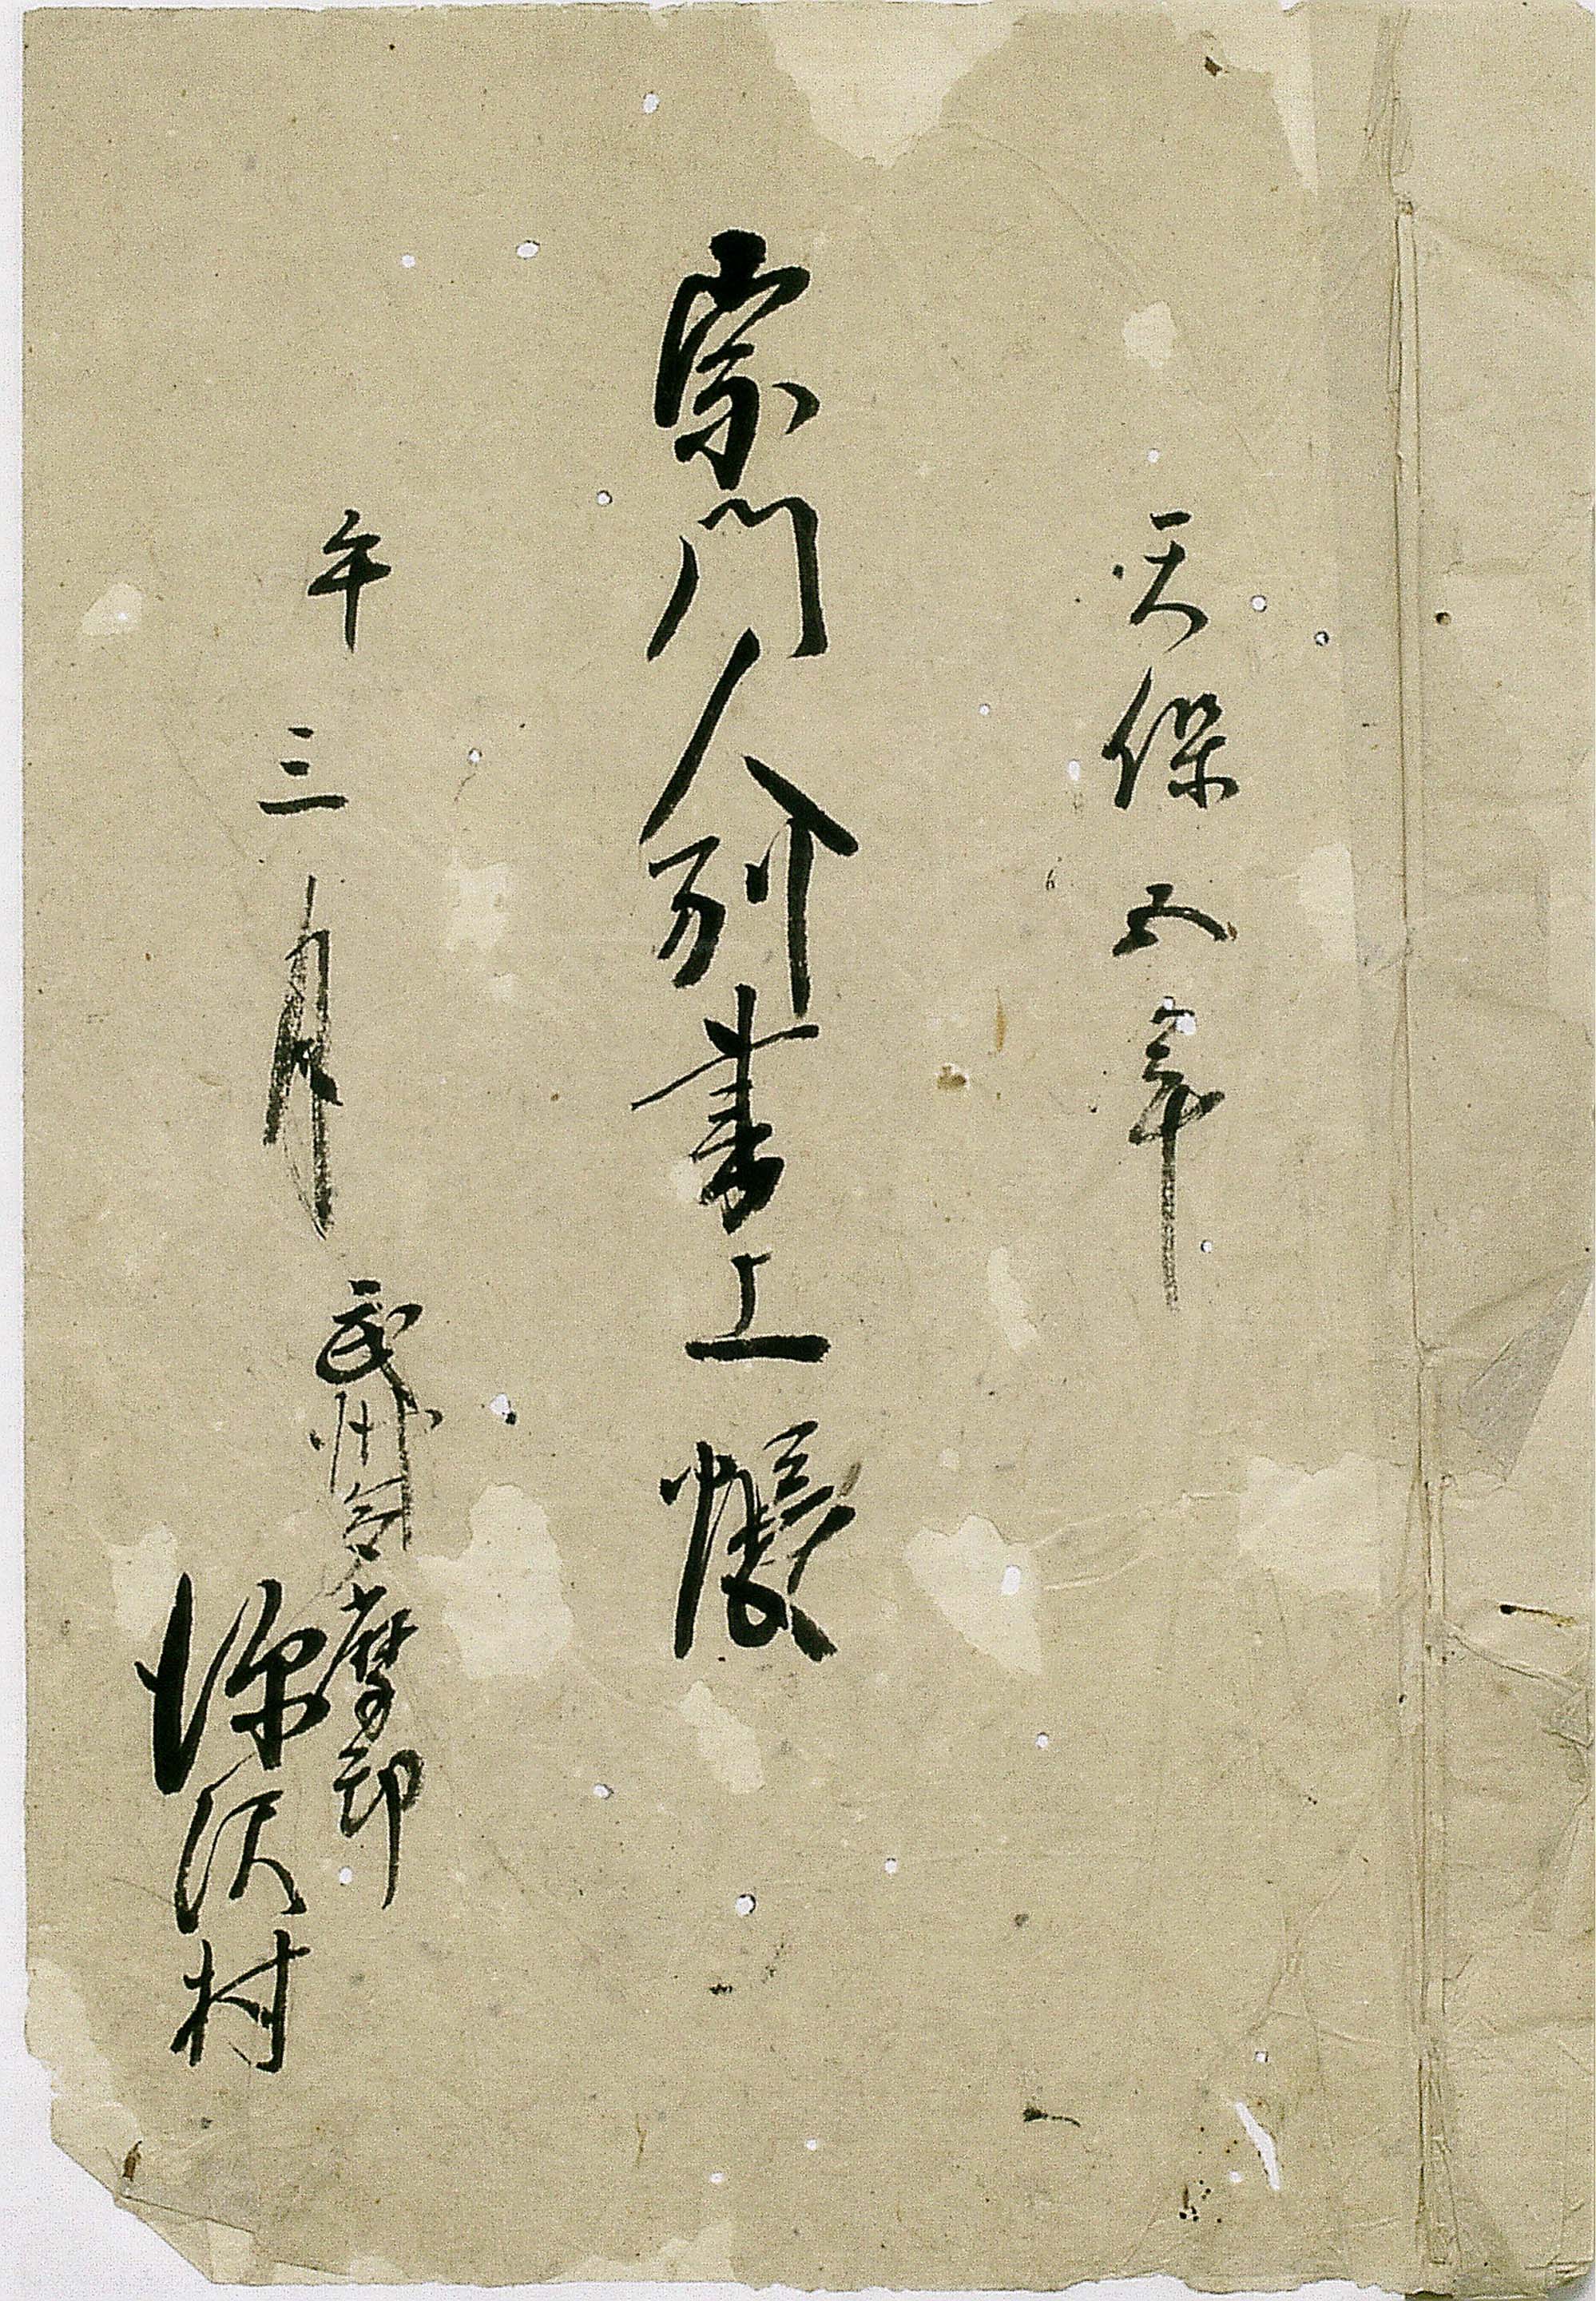 天保五年
宗門人別書上帳
午三月
武州多摩郡
深沢村